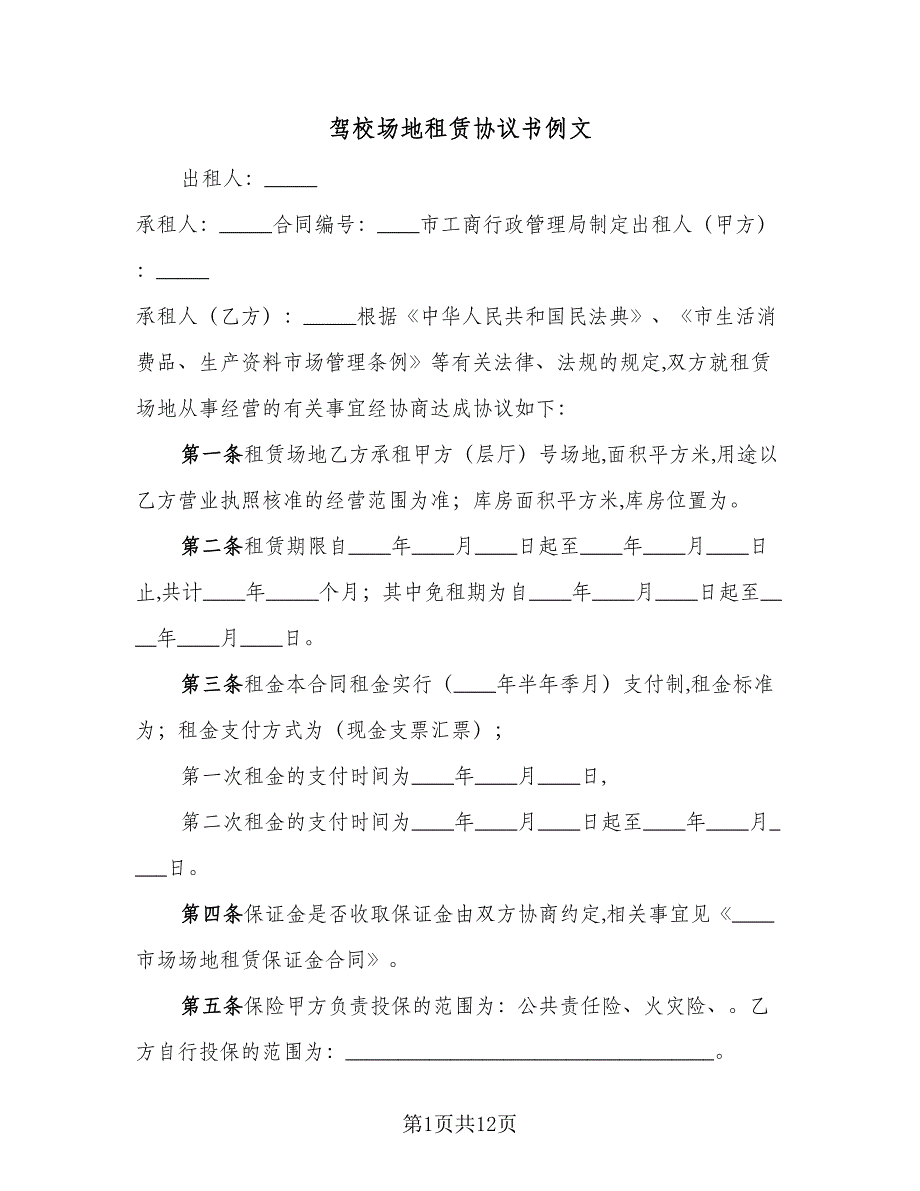 驾校场地租赁协议书例文
出租人：_____
承租人：_____合同编号：____市工商行政管理局制定出租人（甲方）
：_____
承租人（乙方）：_____根据《中华人民共和国民法典》、《市生活消
费品、生产资料市场管理条例》等有关法律、法规的规定,双方就租赁
场地从事经营的有关事宜经协商达成协议如下:
第一条租赁场地乙方承租甲方（层厅）号场地,面积平方米,用途以
乙方营业执照核准的经营范围为准；库房面积平方米,库房位置为。
第二条租赁期限自____年____月____日起至____年____月____日
止,共计____年_____个月；其中免租期为自____年____月____日起至__
__年____月____日。
第三条租金本合同租金实行（____年半年季月）支付制,租金标准
为；租金支付方式为（现金支票汇票）;
第一次租金的支付时间为____年____月____日,
第二次租金的支付时间为____年____月____日起至____年____月_
___日。
第四条保证金是否收取保证金由双方协商约定,相关事宜见《____
市场场地租赁保证金合同》。
第五条保险甲方负责投保的范围为：公共责任险、火灾险、。乙
方自行投保的范围为：___________________________________。
第1页共12页